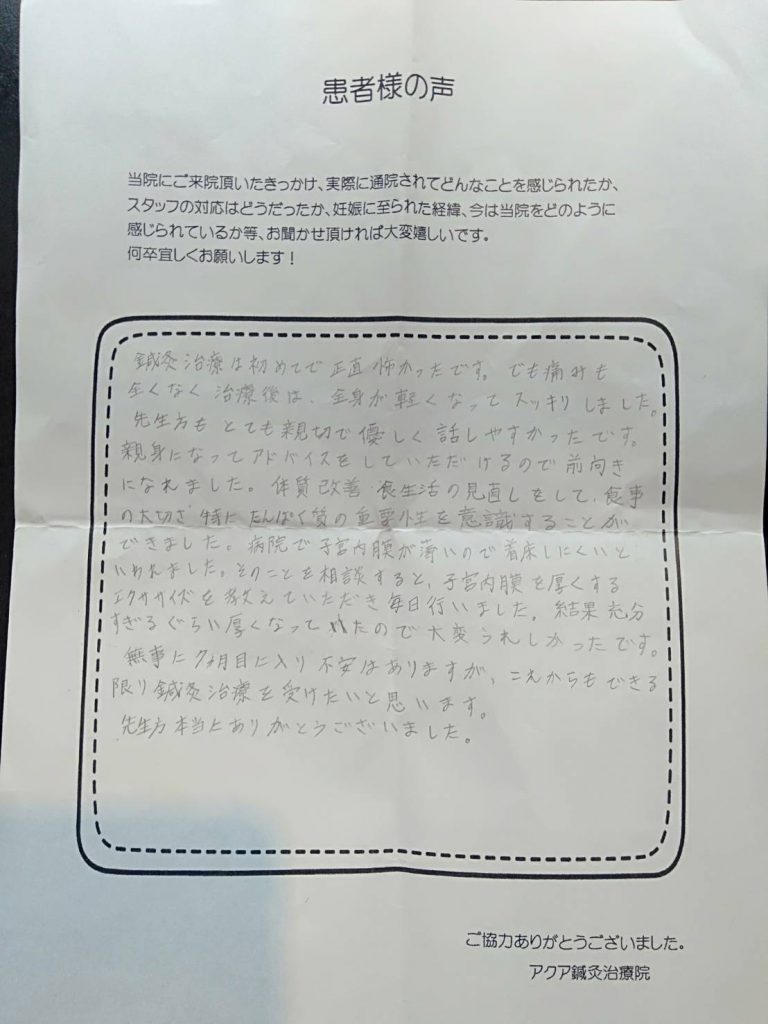 患者様の声
当院にご来院頂いたきっかけ、実際に通院されてどんなことを感じられたか、
スタッフの対応はどうだったか、妊娠に至られた経緯、今は当院をどのように
感じられているか等、お聞かせ頂ければ大変嬉しいです。
何卒宜しくお願いします！
鍼灸治療は初めてで正直怖かったです。でも痛みも
全くなく治療後は、全身が軽くなってスッキリしました。
先生方もとても親切で優しく話しやすかったです。
親身になってアドバイスをしていただけるので前向き
になれました。体質改善・食生活の見直しをして、食事
の大切さ特にたんぱく質の重要性を意識することが
できました。病院で子宮内膜が薄いので着床しにくいと
いわれました。そのことを相談すると、子宮内膜を厚くする
エクササイズを教えていただき毎日行いました。結果充分
すぎるぐらい厚くなっていたので大変うれしかったです。
無事に7ヶ月目に入り不安はありますが、これからもできる
限り鍼灸治療を受けたいと思います。
先生方本当にありがとうございました。
ご協力ありがとうございました。
アクア鍼灸治療院